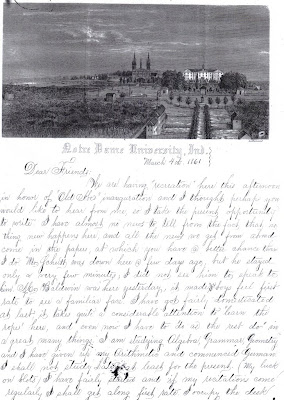 Notre Dame University, Ind.,
March 4th, 1861
Dear Friends
We are having 'recreation' here this afternoon
in honor of Old Abe's inauguration and I thought perhaps you
would like to hear from me, so I take the present opportunity
to write I have almost no news to tell from the fact that no
thing new happens here, and all the news we get from abroad
come in the paper, at which you have a better chance than
I. Mr was down here a few day ago, but he stayed
only a very few minutes, I did not see him to speak to
him. Mr Baldwin was here yesterday, it made boys feel first
rate to see a familiar face. I have got fairly domesticated
at last, it takes quite a considerable attention to learn the
'ropes' here, and even now I have to 'do as the rest do' in
a great many things. I am studying Algebra, Grammar, Geometry
and I have given up my Arithmetic and commenced German
I shall not study Latin at least for the present. (My luck
on blots) I have fairly started and if my recitations come
regularly, I shall get along first rate. I occupy the desk